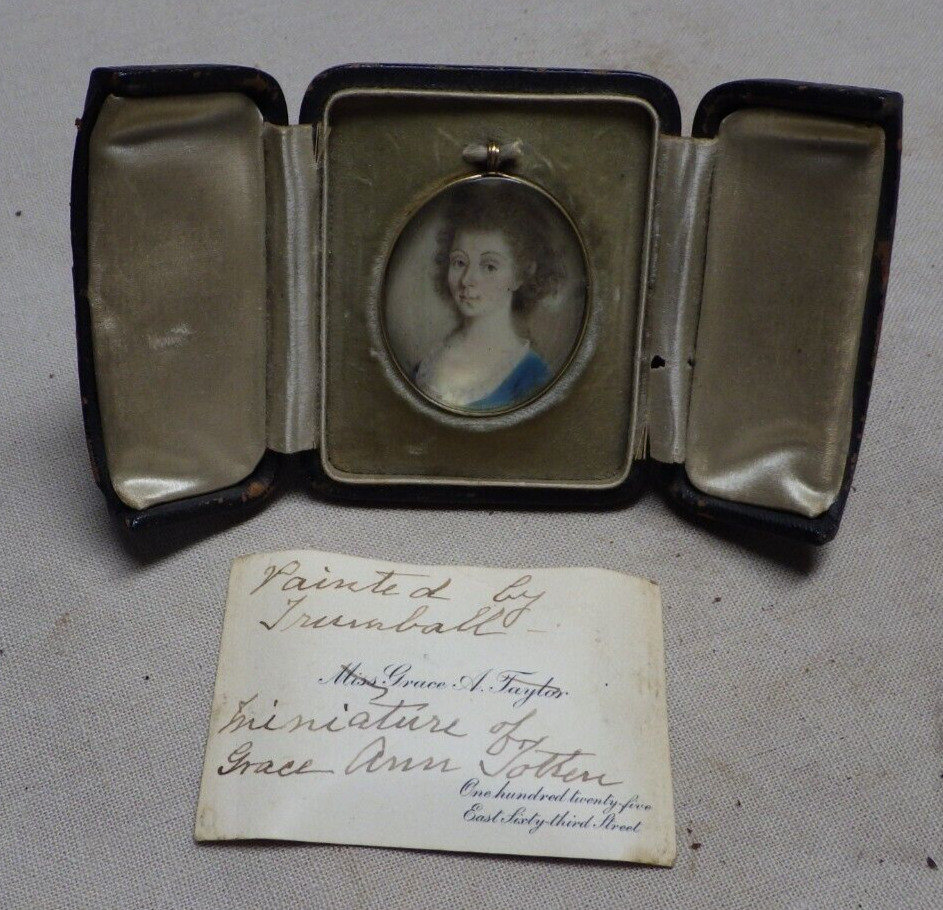 Painted by
Trumball -
Miss Grace A. Taylor
Miniature of
Grace Ann Totten
One hundred twenty-five
East Sixty-third Street